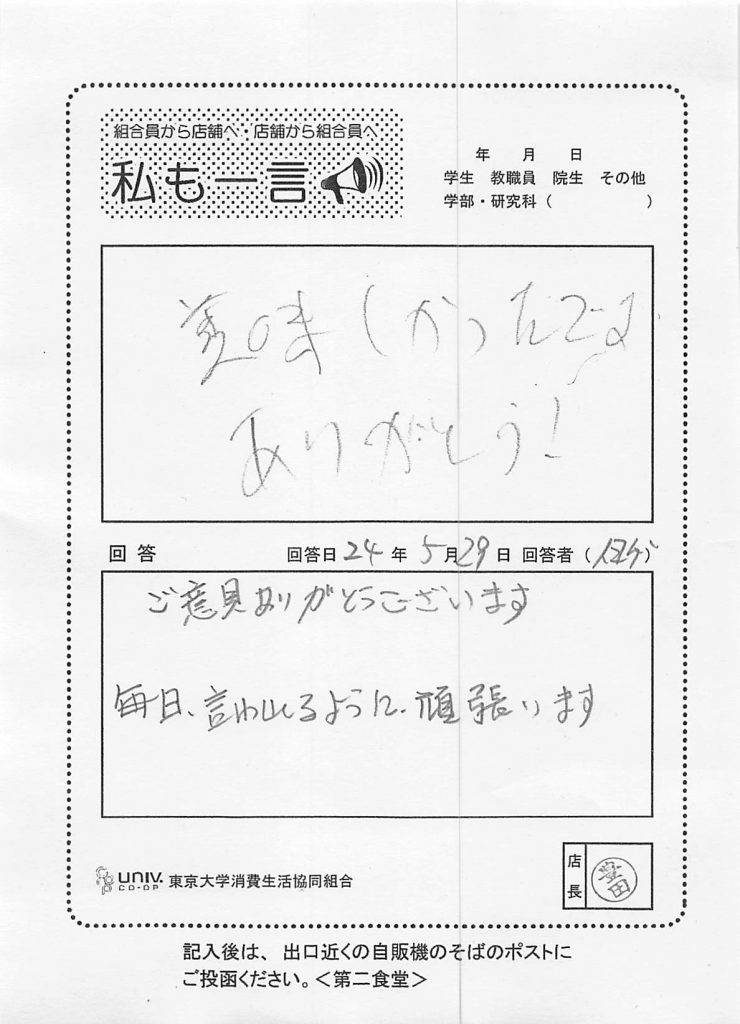 組合員から店舗へ・店舗から組合員へ
私も一言
年 月 日
学生 教職員 院生 その他
学部・研究科（ ）
美味しかったです
ありがとう!
回答 回答日 24 年 5月29日 回答者（ ）
ご意見ありがとうございます
毎日、言われるように、頑張います
UNIV. CO-OP 東京大学消費生活協同組合
店長 豊田
記入後は、出口近くの自販機のそばのポストに
ご投函ください。＜第二食堂＞